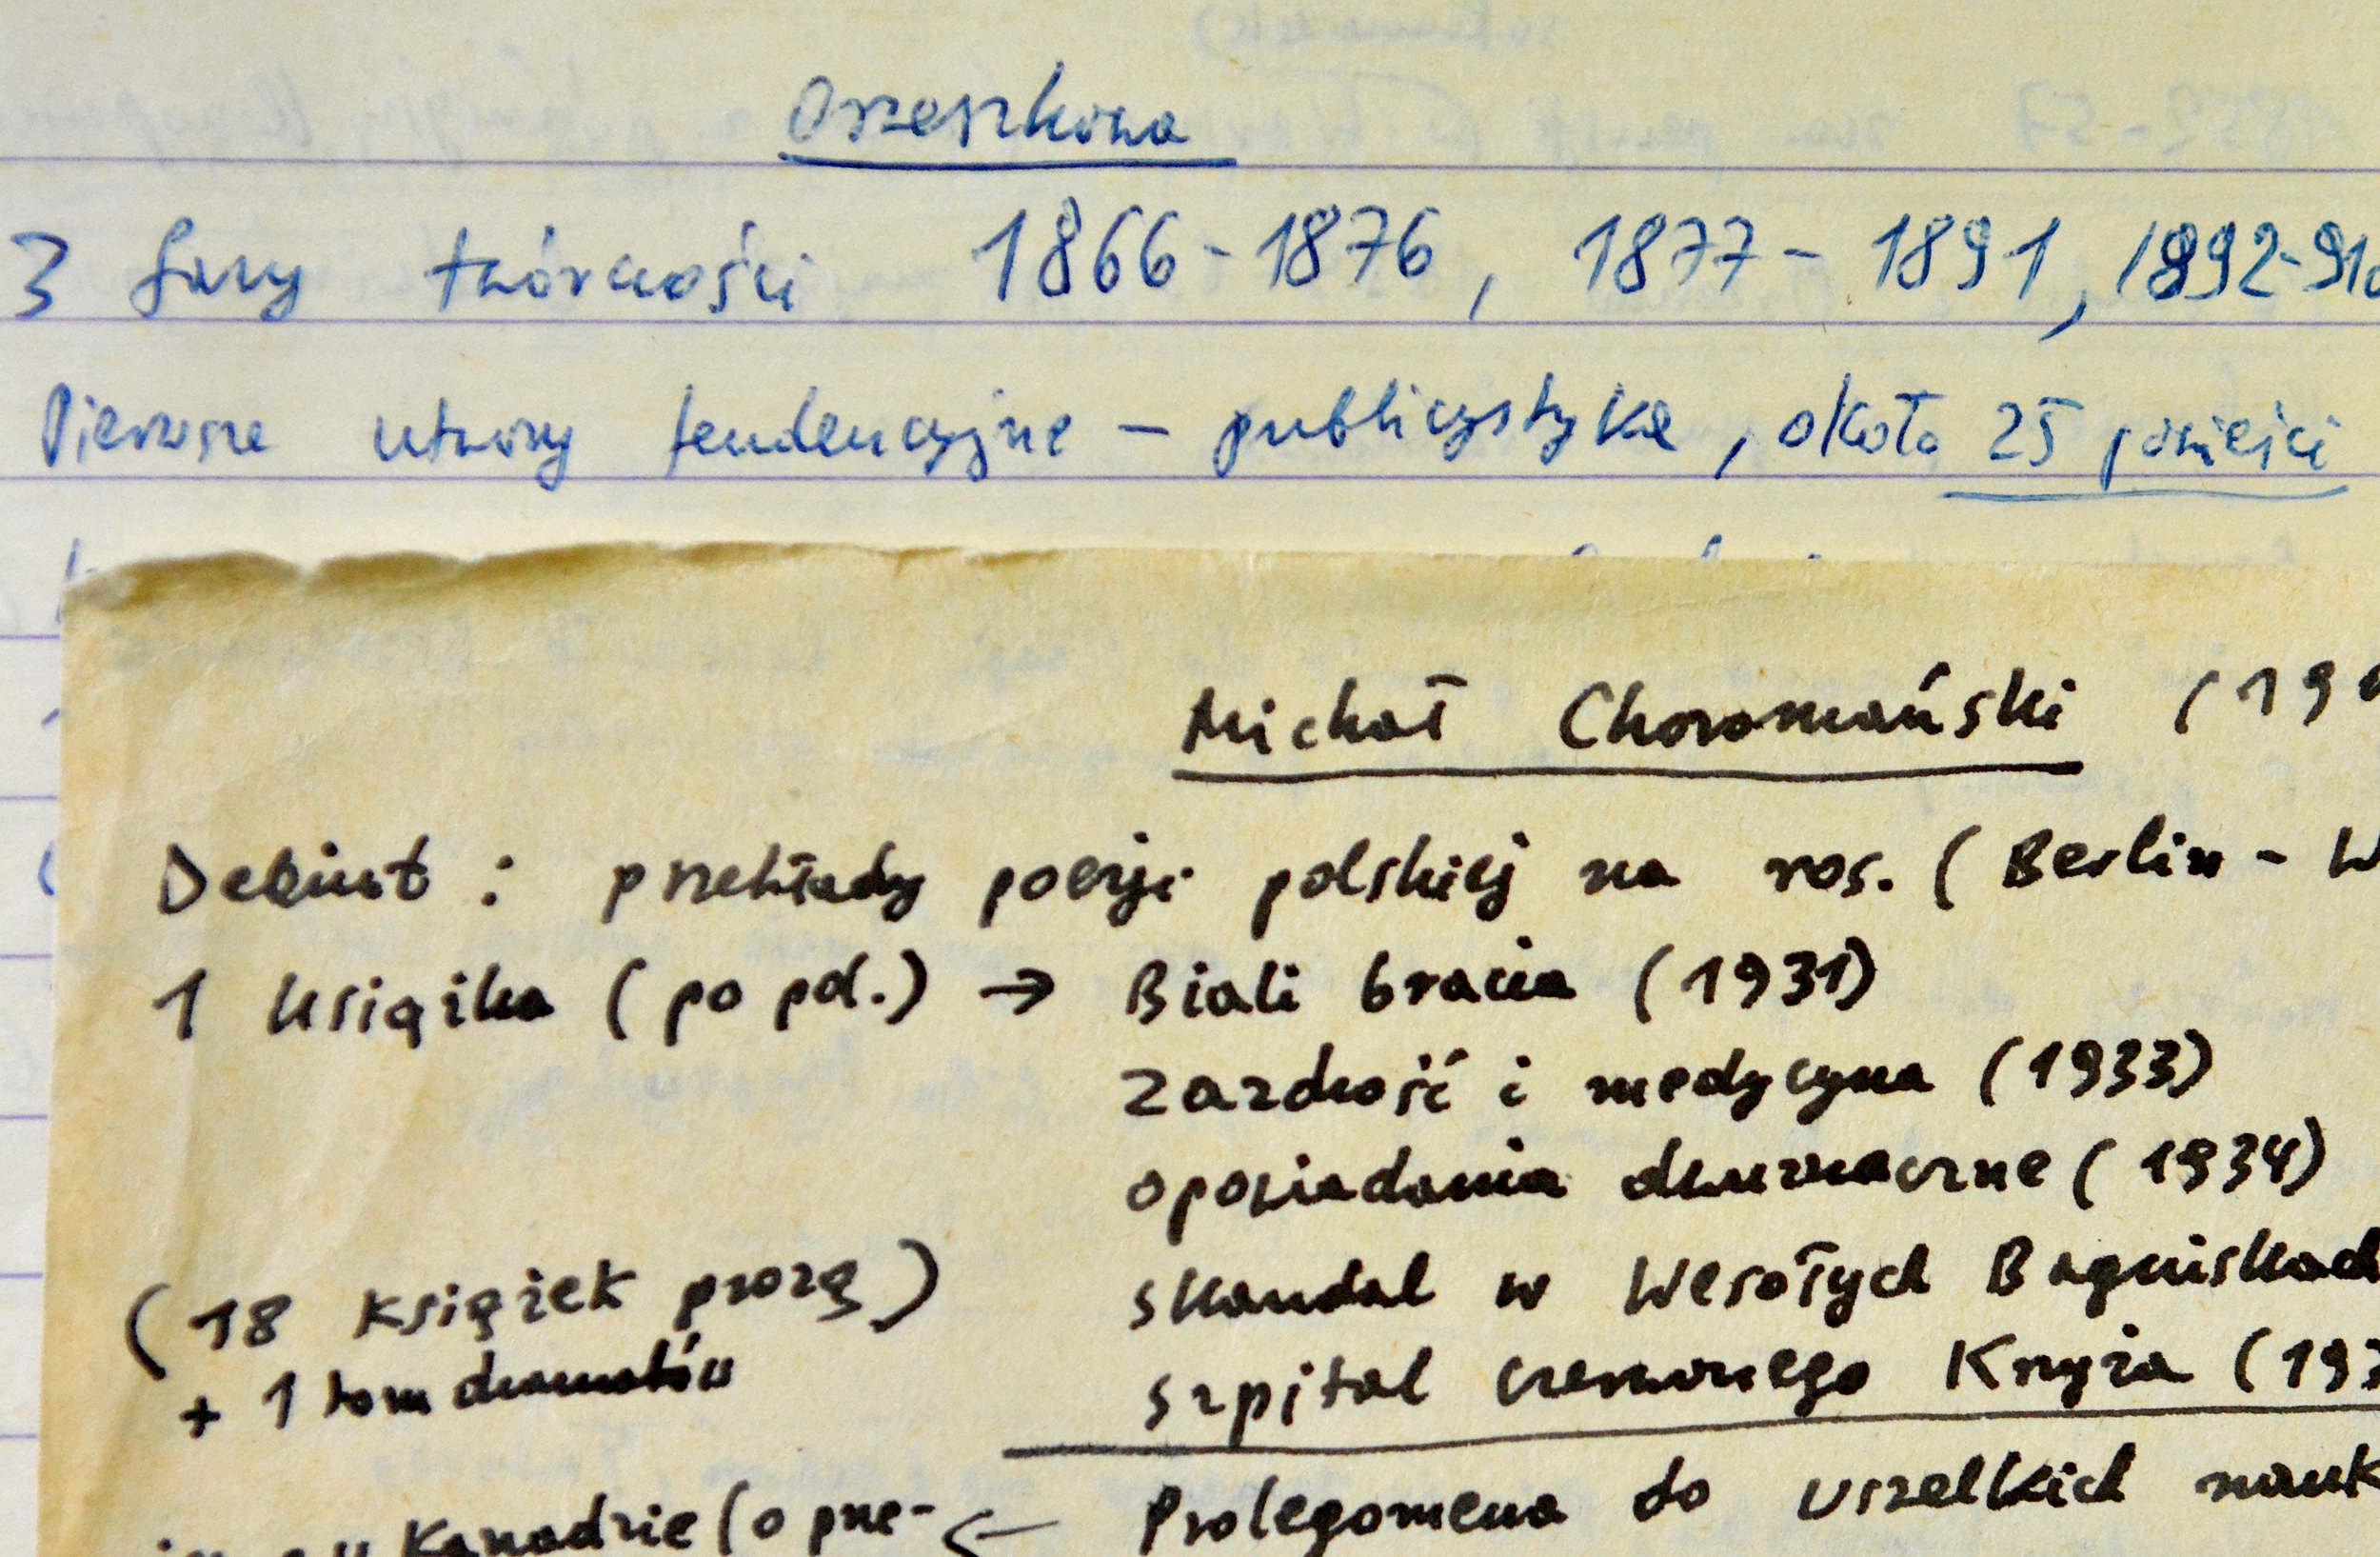 Orzeszkowa
3 fazy twórczości 1866-1876, 1877-1891, 1892-910
Pierwsze utwory tendencyjne – publicystyka, około 25 powieści
Michał Choromański (19
Debiut: przekłady poezji polskiej na ros. (Berlin - W
1 książka (po pol.) → Biali bracia (1931)
Zazdrość i medycyna (1933)
opowiadania dwuznaczne (1934)
skandal w Wesołych Bagniskach
(18 książek prozą)
szpital czerwonego Krzyża (193
+ 1 tom dramatów
Prolegomena do wszelkich nauk
w Kanadzie (o prze- ←